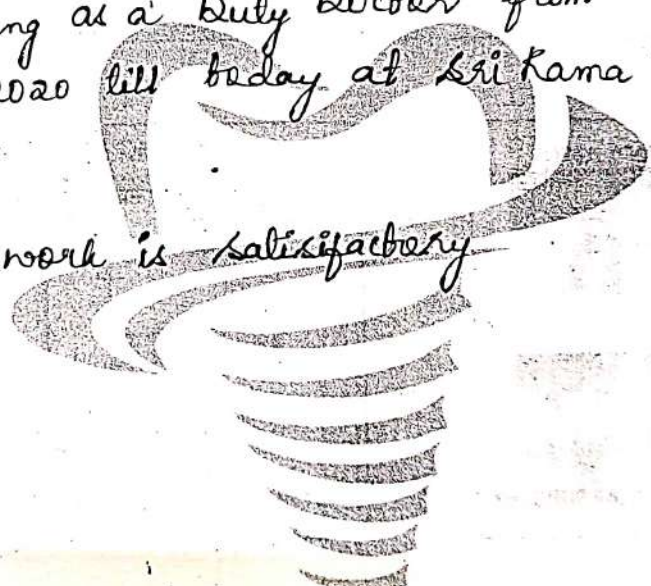 ng as a Duty Doctor from
2020 till today at Sri Rama
work is satisifactory